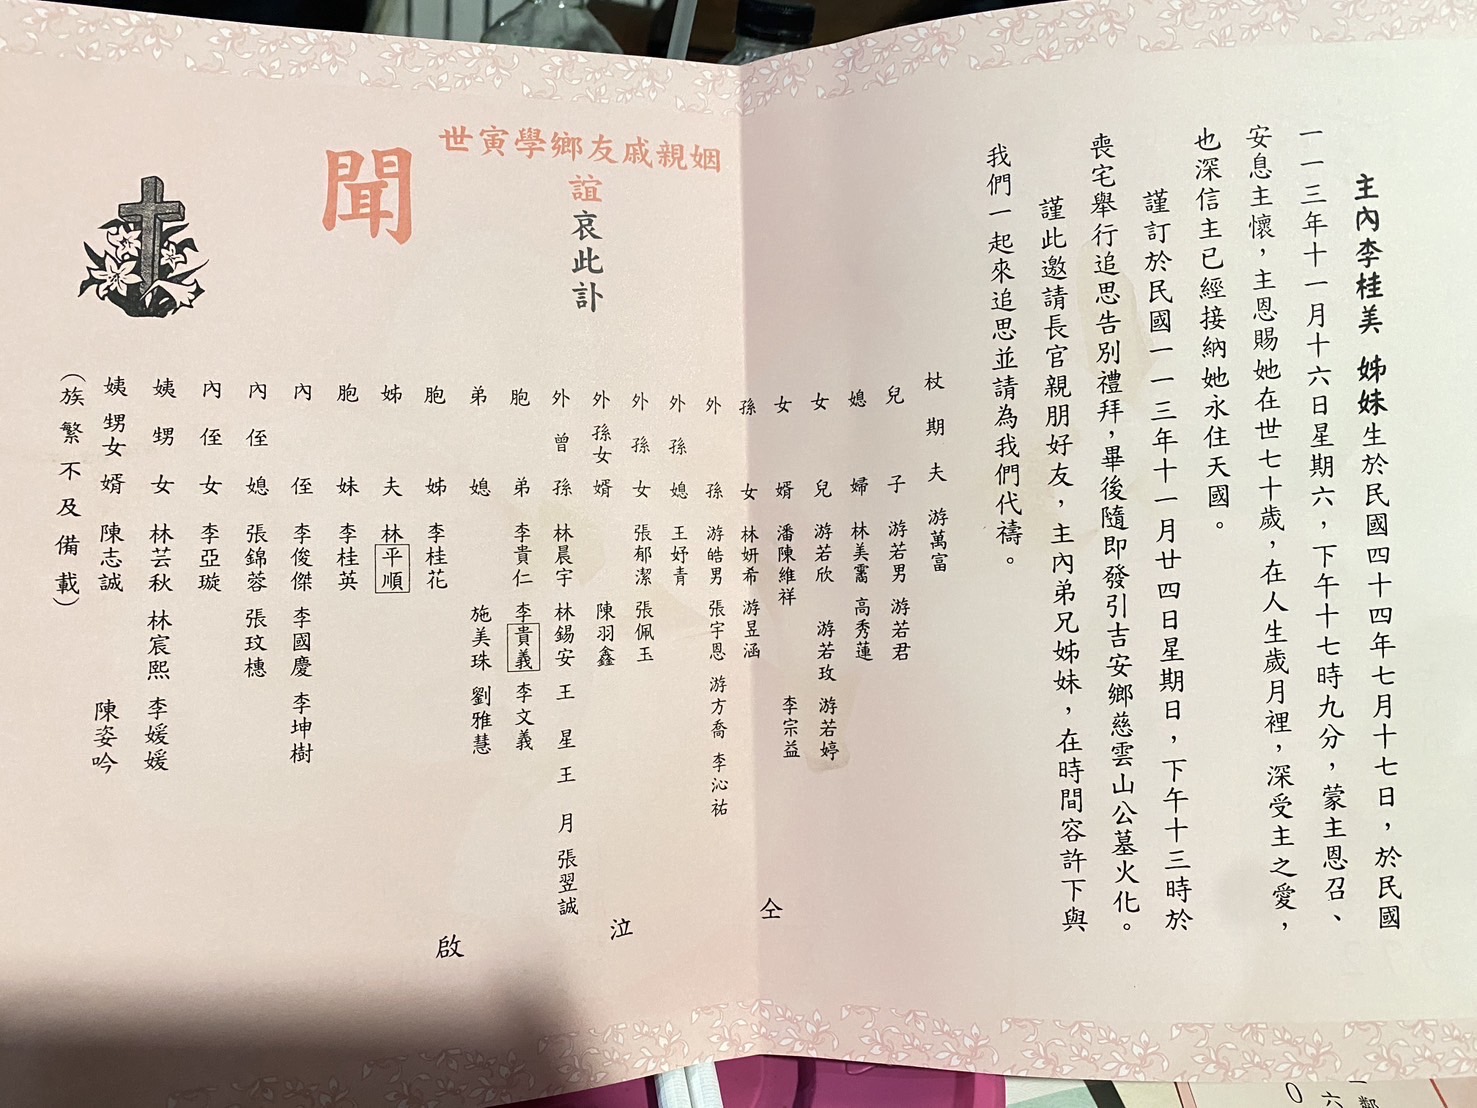 主內李桂美 姊妹生於民國四十四年七月十七日，於民國
一一三年十一月十六日星期六，下午十七時九分，蒙主恩召、
安息主懷，主恩賜她在世七十歲，在人生歲月裡，深受主之愛，
也深信主已經接納她永住天國。
謹訂於民國一一三年十一月廿四日星期日，下午十三時於
喪宅舉行追思告別禮拜，畢後隨即發引吉安鄉慈雲山公墓火化。
謹此邀請長官親朋好友，主內弟兄姊妹，在時間容許下與
我們一起來追思並請為我們代禱。
杖期夫 游萬富
兒子 游若男 游若君
媳婦 林美霱 高秀蓮
女兒 游若欣 游若玫 游若婷
女婿 潘陳維祥 李宗益
孫女 林妍希 游昱涵
外孫 游皓男 張宇恩 游方喬 李沁祐
外孫媳 王妤青
外孫女 張郁潔 張佩玉
外孫女婿 陳羽鑫
外曾孫 林晨宇 林錫安 王星 王月 張翌誠
胞弟 李貴仁 李貴義 李文義
弟媳 施美珠 劉雅慧
胞姊 李桂花
姊夫 林平順
胞妹 李桂英
內侄 李俊傑 李國慶 李坤樹
內侄媳 張錦蓉 張玟橞
內侄女 李亞璇
姨甥女 林芸秋 林宸熙 李媛媛
姨甥女婿 陳志誠 陳姿吟
（族繁不及備載）
仝
泣
啟
姻親戚友鄉學寅世
誼哀此訃
聞